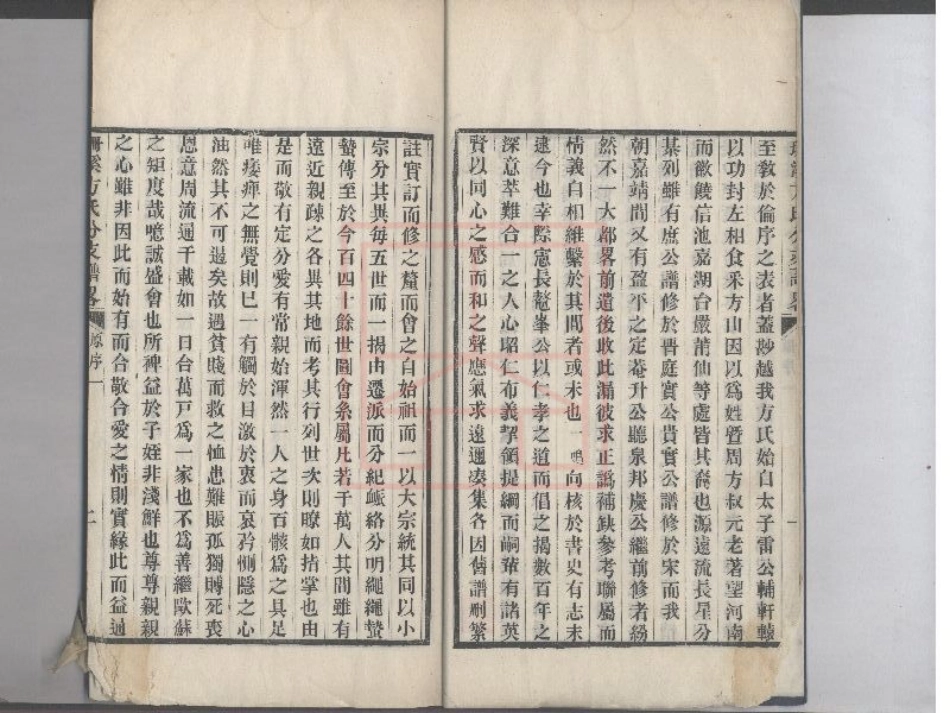 至敎於倫序之表者蓋尠越我方氏始自太子雷公輔軒轅
以功封左相食釆方山因以爲姓曁周方叔元老著望河南
而徽饒信池嘉湖台嚴莆仙等處皆其裔也源遠流長星分
棊列雖有庶公譜修於晋庭實公貴實公譜修於宋而我
朝嘉靖間又有盈平之定菴升公聽泉邦慶公繼前修者紛
然不一大都畧前遺後收此漏彼求正譌補缺參考聯屬而
情義自相維繫於其間者或未也一鳴向核於書史有志未
逮今也幸際憲長鰲峯公以仁孝之道而倡之揭數百年之
深意萃難合一之人心昭仁布義挈領提綱而嗣葷有諸英
賢以同心之感而和之聲應氣求遠邇湊集各因舊譜刪繁
註實訂而修之釐而會之自始祖而一以大宗統其同以小
宗分其異每五世而一揭由遷派而分紀崿絡分明繩繩蟄
蟄傳至於今百四十餘世圖會系屬凡若千萬人其間雖有
遠近親疎之各異其地而考其行列世次則瞭如指掌也由
是而敬有定分愛有常親始渾然一人之身百骸爲之具足
唯痿痺之無覺則已一有觸於目激於衷而哀矜惻隱之心
油然其不可遏矣故遇貧賤而救之恤患難賑孤獨賻死喪
恩意周流逥千載如一日台萬戸爲一家也不爲善繼歐蘇
之矩度哉噫誠盛會也所裨益於子姪非淺鮮也尊尊親親
之心雖非因此而始有而合敬合愛之情則實緣此而益逥
溪方氏分支譜畧 原序 一